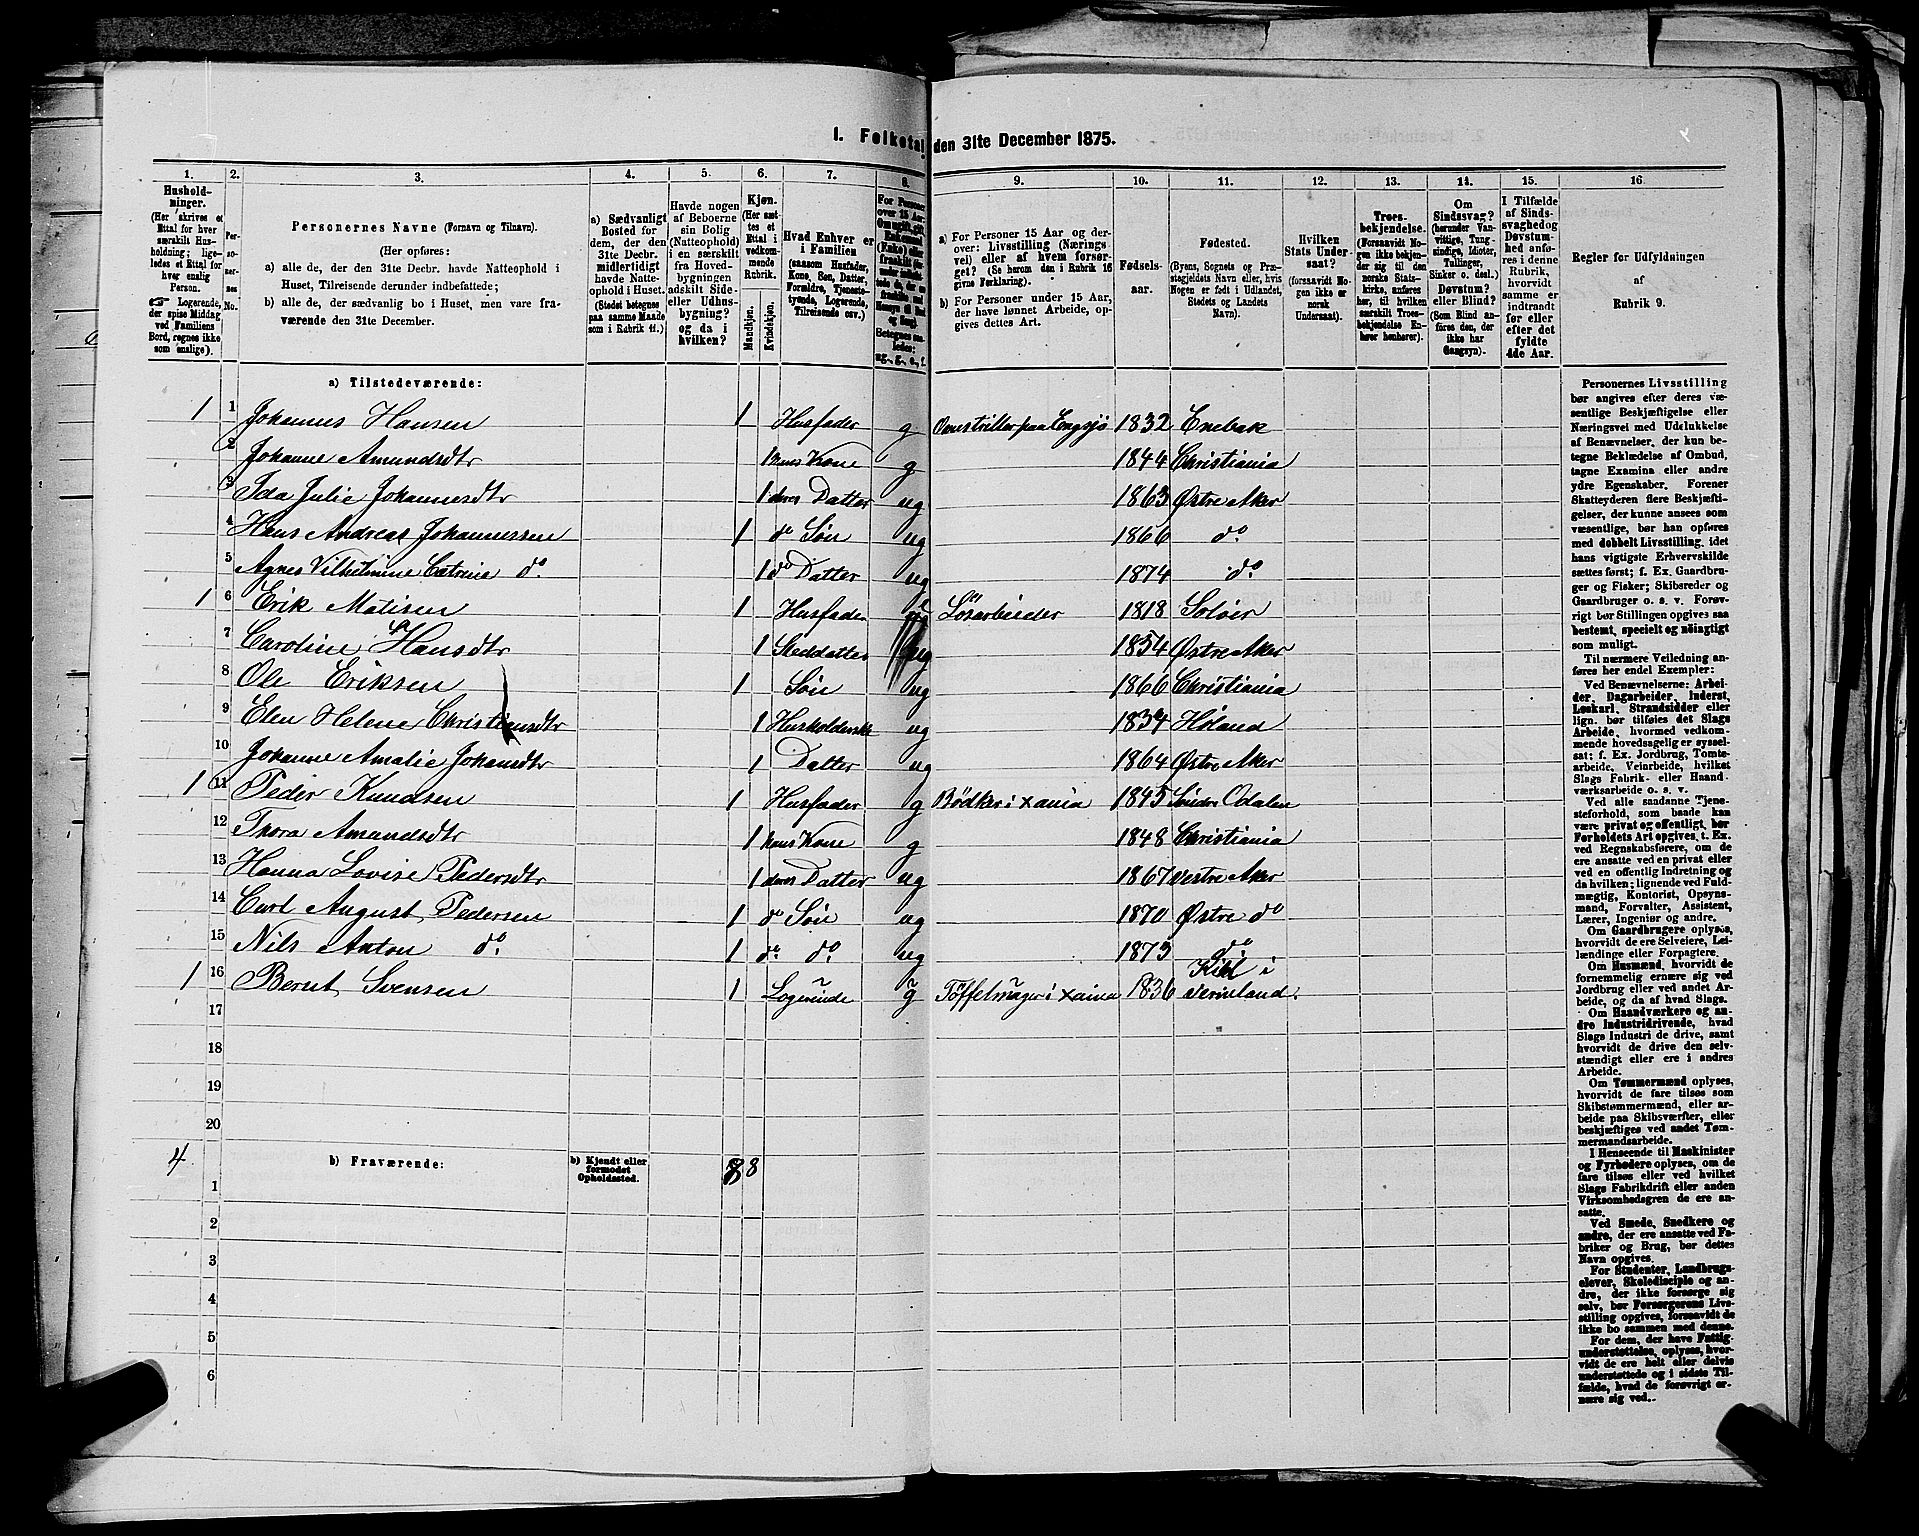 I. Folketal den 31te December 1875.
1. 2. 3. 4. 5. 6. 7. 8. 9. 10. 11. 12. 13. 14. 15. 16
Hushold-
ninger.
(Her skrives et
Ettal for hver
særskilt Hus-
holdning; lige-
ledes et Ettal for
hver enslig
Person.
☞ Logerende,
der spise Middag
ved Familiens
Bord, regnes ikke
som enslige).
Per-
so-
ner-
nes
No.
Personernes Navne (Fornavn og Tilnavn).
(Her opføres:
a) alle de, der den 31te Decbr. havde Natteophold i
Huset, Tilreisende derunder indbefattede;
b) alle de, der sædvanlig bo i Huset, men vare fra-
værende den 31te December.
a) Sædvanligt
Bosted for
dem, der den
31te Decbr.
midlertidigt
havde Natte-
ophold i Huset.
(Stedet betegnes
paa samme Maade
som i Rubrik 11.)
Havde nogen
af Beboerne
sin Bolig
(Natteophold)
i en særskilt
fra Hoved-
bygningen
adskilt Side-
eller Udhus-
bygning?
og da i
hvilken?
Kjøn.
(Her sæt-
tes et
Ettal i
vedkom-
mende
Rubrik.
Mandkjøn.
Kvindekjøn.
Hvad Enhver er
i Familien
(saasom Husfader,
Kone, Søn, Datter,
Forældre, Tjeneste-
tyende, Logerende,
Tilreisende osv.)
a) For Personer 15 Aar og der-
over: Livsstilling (Nærings
vei) eller af hvem forsør-
get? (Se herom den i Rubrik 16
givne Forklaring).
b) For Personer under 15 Aar,
der have lønnet Arbeide, op-
gives dettes Art.
Fødsels-
aar.
Fødested.
(Byens, Sognets og Præ-
stegjeldets Navn eller, hvis
Nogen er født i Udlandet,
Stedets og Landets
Navn).
Hvilken
Stats Under-
saat?
(forsaavidt No-
gen ikke er
norsk
Undersaat).
Troes-
bekjendelse.
(Forsaavidt No-
gen ikke bekjen-
der sig til den
norske Stats-
kirke, anføres
her, til hvilken
særskilt Troes-
bekjendelse En-
hver henhører).
Om
Sindssvag?
(herunder Van-
vittige, Tung-
sindige, Idioter,
Tullinger,
Sinker o. desl.)
Døvstum?
eller Blind?
(Som Blind an-
føres den, der
ikke har
Gangsyn).
I Tilfælde
af Sinds-
svaghed og
Døvstum-
hed anfø-
res i denne
Rubrik,
hvorvidt
samme er
indtraadt
før eller
efter det
fyldte
4de Aar.
Regler for Udfyldningen
af
Rubrik 9.
a) Tilstedeværende:
1 1 Johannes Hansen 1 Husfader g 1832 Enebak
2 Johanne Amundsdtr 1 hans Kone g 1844 Christiania
3 Ida Julie Johannesdtr 1 deres Datter ug 1863 Østre Aker
4 Hans Andreas Johannessen 1 do Søn ug 1866 do.
5 Agnes Vilhelmine Catrine do. 1 do Datter ug 1874 do.
1 6 Erik Matisen 1 Husfader Løsarbeider 1818 Soløer
7 Caroline Hansdtr 1 Steddatter ug 1854 Østre Aker
8 Ole Eriksen 1 Søn ug 1866 Christiania
9 Elen Helene Christiansdtr 1 ug 1834 Høland
10 Johanne Amalie Johansdtr 1 Datter ug 1864 Østre Aker
1 11 Peder Knudsen 1 Husfader g Bødker i Xania 1845 Søndre Odalen
12 Thora Amundsdtr 1 hans Kone g 1848 Christiania
13 Hanna Lovise Pedersdtr 1 deres Datter ug 1867 Vestre Aker
14 Carl August Pedersen 1 do Søn ug 1870 Østre do
15 Nils Anton do. 1 do. do. ug 1873 do.
1 16 Bernt Svensen 1 Logerende g Tøffelmager i Xania 1836 Kihl i Vermland.
17
18
19
20
4 b) Fraværende: b) Kjendt eller
formodet
Opholdssted. 8 8
1
2
3
4
5
6
Personernes Livsstilling
bør angives efter deres væ-
sentlige Beskjæftigelse eller
Næringsvei med Udelukkelse
af Benævnelser, der kun be-
tegne Beklædelse af Ombud,
tagne Examina eller andre
ydre Egenskaber. Forener
Skatteyderen flere Beskjæfti-
gelser, der kunne ansees som
væsentlige, bør han opføres
med dobbelt Livsstilling, idet
hans vigtigste Erhvervskilde
sættes først; f. Ex. Gaardbru-
ger og Fisker; Skibsreder og
Gaardbruger o. s. v. Forøv-
rigt bør Stillingen opgives saa
bestemt, specielt og nøiagtigt
som muligt.
Til nærmere Veiledning an-
føres her endel Exempler:
Ved Benævnelserne: Arbei-
der, Dagarbeider, Inderst,
Løskarl, Strandsidder eller
lign. bør tilføies det Slags
Arbeide, hvormed vedkom-
mende hovedsagelig er syssel-
sat; f. Ex. Jordbrug, Tomte-
arbeide, Veiarbeide, hvilket
Slags Fabrik- eller Haand-
værksarbeide o. s. v.
Ved alle saadanne Tjene-
steforhold, som baade kan
være privat og offentligt, bør
Forholdets Art opgives, t. Ex.
ved Regnskabsførere, om de
ere ansatte ved en privat eller
ved en offentlig Indretning og
da hvilken; lignende ved Fuld-
mægtig, Kontorist, Opsyns-
mand, Forvalter, Assistent,
Lærer, Ingeniør og andre.
Om Gaardbrugere oplyses,
hvorvidt de ere Selveiere, Lei-
lændinge eller Forpagtere.
Om Husmænd, hvorvidt de
fornemmelig ernære sig ved
Jordbrug eller ved andet Ar-
beide, og da af hvad Slags.
Om Haandværkere og an-
dre Industridrivende, hvad
Slags Industri de drive, samt
hvorvidt de drive den selv-
stændigt eller ere i andres
Arbeide.
Om Tømmermænd oplyses,
hvorvidt de fare tilsøs som
Skibstømmermænd, eller ar-
beide paa Skibsværfter, eller
beskjæftiges ved andet Tøm-
mermandsarbeide.
I Henseende til Maskinister
og Fyrbødere oplyses, om de
fare tilsøs eller ved hvilket
Slags Fabrikdrift eller anden
Virksomhedsgren de ere an-
satte.
Ved Smede, Snedkere og
andre, der ere ansatte ved Fa-
briker og Brug, bør dettes
Navn opgives.
For Studenter, Landbrugs-
elever, Skoledisciple og an-
dre, der ikke forsørge sig
selv, bør Forsørgerens Livs-
stilling opgives, forsaavidt de
ikke bo sammen med denne.
For dem, der have Fattig-
understøttelse, oplyses, hvor-
vidt de ere helt eller delvis
understøttede og i sidste Til-
fælde, hvad de forøvrigt er-
nære sig ved.